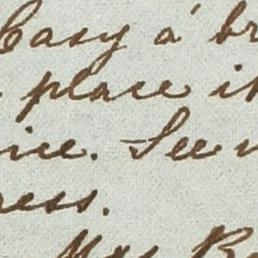 Easy a br
place it
ice. See
ress.
Mrs. B